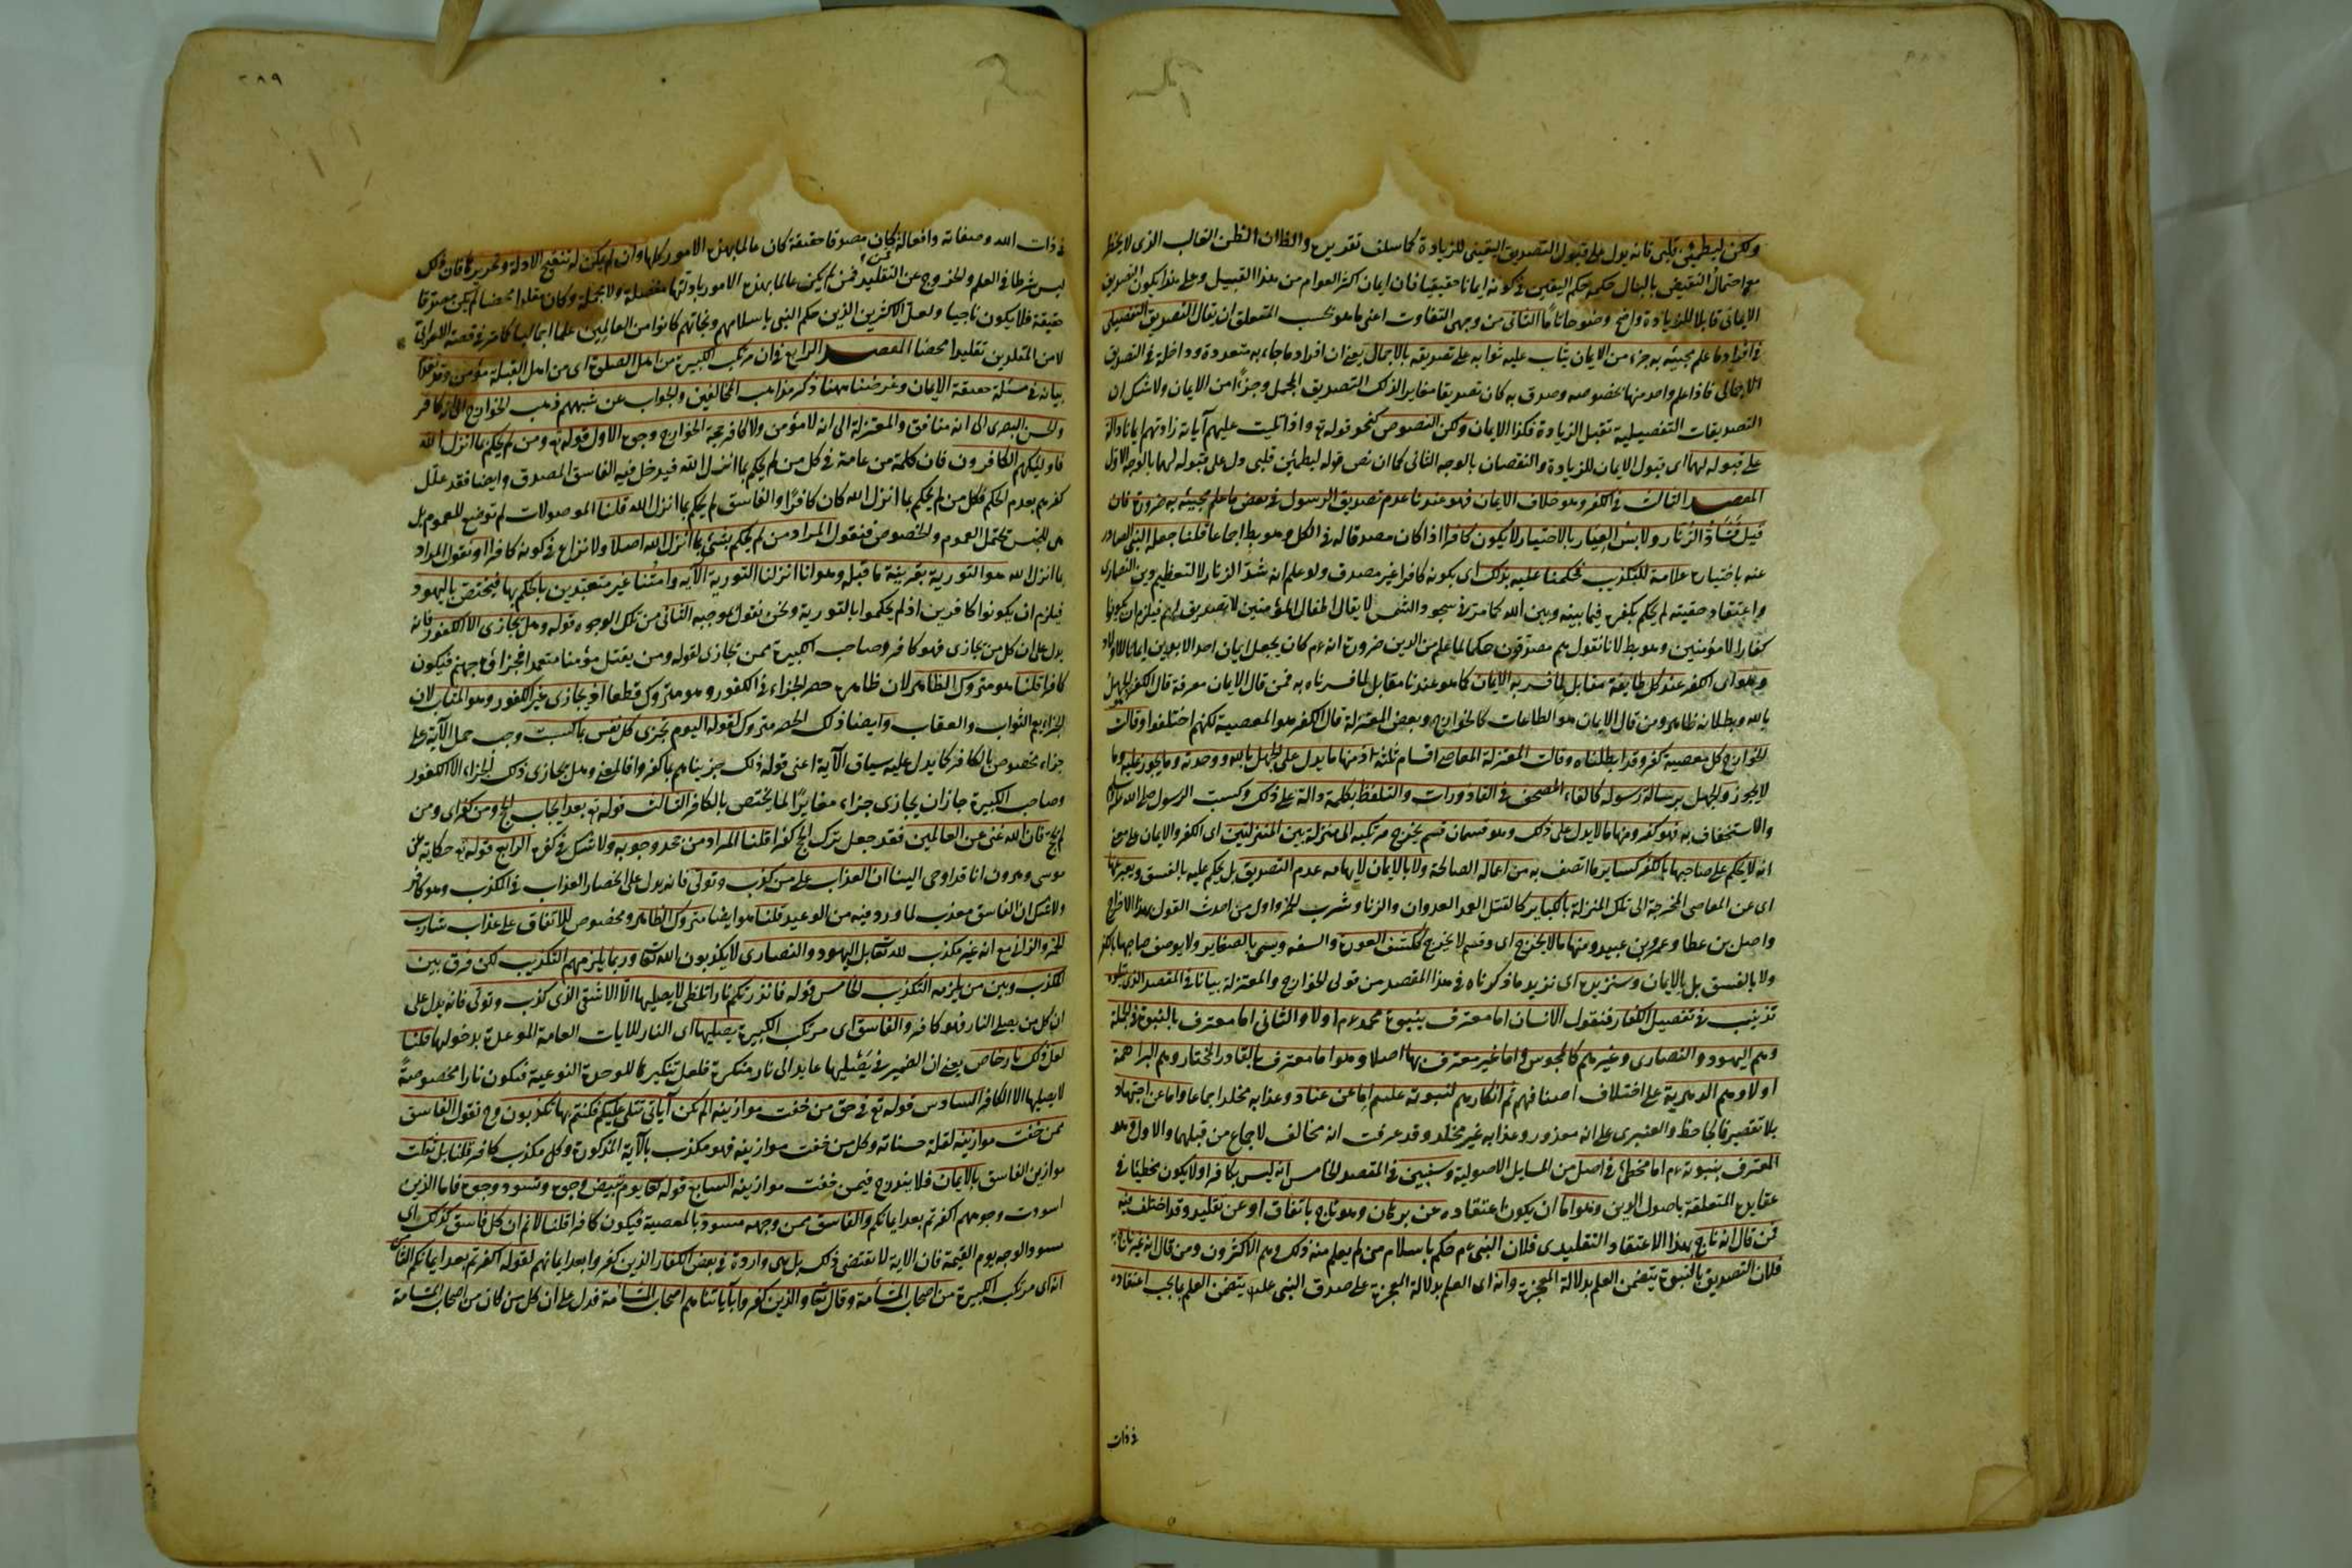 ولكن ليطمئن قلبى فانه يدل على قبول التصديق اليقينى للزيادة كما سلف تقديره والظاهر ان الظن الغالب الذى لا يخطر
معه احتمال النقيض بالبال حكمه حكم اليقين فى كونه ايمانا حقيقيا فان ايمان اكثر العوام من هذا القبيل وعلى هذا يكون التصديق
الايمانى قابلا للزيادة واضح وضوحا تاما الثانى من وجهى التفاوت اعنى ما هو بحسب المتعلق ان يقال للتصديق التفصيلى
فى افراد ما علم مجيئه به جزء من الايمان يثاب عليه ثوابه على تصديقه بالاجمال يعنى ان افراد ما جاء به متعددة وداخلة فى التصديق
الاجمالى فاذا علم واحد منها بخصوصه وصدق به كان تصديقا مغايرا لذلك التصديق المجمل وجزءا من الايمان ولا شك ان
التصديقات التفصيلية تقبل الزيادة فكذا الايمان ولكن النصوص كنحو قوله تع واذا تليت عليهم آياته زادتهم ايمانا دالة
على قبوله لهما اى قبول الايمان للزيادة والنقصان بالوجه الثانى كما ان نص قوله ليطمئن قلبى دل على قبوله لهما بالوجه الاول
المقصد الثالث فى الكفر وهو خلاف الايمان فهو عندنا عدم تصديق الرسول فى بعض ما علم مجيئه به ضرورة فان
قيل فشاد الزنار ولابس الغيار بالاختيار لا يكون كافرا اذا كان مصدقا له فى الكل وهو بط اجماعا قلنا جعل النبى الصادر
عنه باختياره علامة للتكذيب فحكمنا عليه بذلك اى بكونه كافرا غير مصدق ولو علم انه شد الزنار لا لتعظيم دين النصارى
واعتقاد حقيته لم يحكم بكفره فيما بينه وبين الله كما مر فى سجود الشمس لا يقال اطفال المؤمنين لا تصديق لهم فيلزم ان يكونوا
كفارا لا مؤمنين وهو بط لانا نقول هم مصدقون حكما لما علم من الدين ضرورة انه عم كان يجعل ايمان احد الابوين ايمانا للاولاد
وهو اى الكفر عند كل طايفة مقابل لما فسر به الايمان كما هو عندنا مقابل لما فسرناه به فمن قال الايمان معرفة قال الكفر الجهل
بالله وبطلانه ظاهر ومن قال الايمان هو الطاعات كالخوارج وبعض المعتزلة قال الكفر هو المعصية لكنهم اختلفوا وقالت
الخوارج كل معصية كفر وقد ابطلناه وقالت المعتزلة المعاصى اقسام ثلثة اذ منها ما يدل على الجهل بالله ووحدته وما يجوز عليه وما
لا يجوز والجهل برسالة رسوله كالقاء المصحف فى القاذورات والتلفظ بكلمة دالة على ذلك وكسب الرسول صلى الله
والاستخفاف به فهو كفر ومنها ما لا يدل على ذلك وهو قسمان قسم يخرج مرتكبه الى منزلة بين المنزلتين اى الكفر والايمان على معنى
انه لا يحكم على صاحبها بالكفر لساير ما اتصف به من اعماله الصالحة ولا بالايمان لايهامه عدم التصديق بل يحكم عليه بالفسق ويعبر عنها
اى عن المعاصى المخرجة الى تلك المنزلة بالكباير كالقتل العمد العدوان والزنا وشرب الخمر واول من احدث القول بهذا الاخراج
واصل بن عطا وعمرو بن عبيد ومنها ما لا يخرج اى وقسم لا يخرج ككشف العورة والسفه ويسمى بالصغاير ولا يوصف صاحبها بالكفر
ولا بالفسق بل بالايمان وسنزيده اى نزيد ما ذكرناه فى هذا المقصد من قولى الخوارج والمعتزلة بيانا فى المقصد الذى
تذنيب فى تفصيل الكفار فنقول الانسان اما معترف بنبوة محمد عم اولا والثانى اما معترف بالنبوة فى الجملة
وهم اليهود والنصارى وغيرهم كالمجوس واما غير معترف بها اصلا وهو اما معترف بالقادر المختار وهم البراهمة
اولا وهم الدهرية على اختلاف اصنافهم ثم انكارهم لنبوته عليسم اما عن عناد وعذابه مخلد اجماعا واما عن اجتهاد
بلا تقصير فالجاحظ والعنبرى على انه معذور وعذابه غير مخلد وقد عرفت انه مخالف لاجماع من قبلهما والاول وهو
المعترف بنبوته عم اما مخطئ فى اصل من المسايل الاصولية وسنبين فى المقصد الخامس انه ليس بكافر اولا يكون مخطئا فى
عقايده المتعلقة باصول الدين وهو اما ان يكون اعتقاده عن برهان وهو ناج باتفاق او عن تقليد وقد اختلف فيه
فمن قال انه ناج بهذا الاعتقاد التقليدى فلان النبى عم حكم باسلام من لم يعلم منه ذلك وهم الاكثرون ومن قال انه غير ناج به
فلان التصديق بالنبوة يتضمن العلم بدلالة المعجزة وانه اى العلم بدلالة المعجزة على صدق النبى علم يتضمن العلم بما يجب اعتقاده
فى ذات
٢٨٩
فى ذات الله وصفاته وافعاله فمن كان مصدقا حقيقة كان عالما بهذه الامور كلها وان لم يكن له تنقيح الادلة وتحريرها فان ذلك
ليس شرطا فى العلم والخروج عن التقليد فمن لم يكن عالما بهذه الامور بادلتها مفصلة ولا مجملة وكان مقلدا محضا لم يكن مصدقا
حقيقة فلا يكون ناجيا ولعل الاكثرين الذين حكم النبى باسلامهم ونجاتهم كانوا من العالمين علما اجماليا كما مر فى قصة الاعرابى
لا من المقلدين تقليدا محضا المقصد الرابع فى ان مرتكب الكبيرة من اهل الصلوة اى من اهل القبلة مؤمن وقد تقدم
بيانه فى مسئلة حقيقة الايمان وغرضنا ههنا ذكر مذاهب المخالفين والجواب عن شبههم ذهب الخوارج الى انه كافر
والحسن البصرى الى انه منافق والمعتزلة الى انه لا مؤمن ولا كافر حجة الخوارج وجوه الاول قوله تع ومن لم يحكم بما انزل الله
فاوليك هم الكافرون فان كلمة من عامة فى كل من لم يحكم بما انزل الله فيدخل فيه الفاسق المصدق وايضا فقد علل
كفرهم بعدم الحكم فكل من لم يحكم بما انزل الله كان كافرا والفاسق لم يحكم بما انزل الله قلنا الموصولات لم توضع للعموم بل
هى للجنس تحتمل العموم والخصوص فنقول المراد من لم يحكم بشئ مما انزل الله اصلا ولا نزاع فى كونه كافرا او نقول المراد
بما انزل الله هو التورية بقرينة ما قبله وهو انا انزلنا التورية الآية وامتنا غير متعبدين بالحكم بها فيختص باليهود
فيلزم ان يكونوا كافرين اذ لم يحكموا بالتورية ونحن نقول بموجبه الثانى من تلك الوجوه قوله وهل يجازى الا الكفور فانه
يدل على ان كل من يجازى فهو كافر وصاحب الكبيرة ممن يجازى لقوله ومن يقتل مؤمنا متعمدا فجزاؤه جهنم فيكون
كافرا قلنا هو متروك الظاهر لان ظاهره حصر الجزاء فى الكفور وهو متروك قطعا اذ يجازى غير الكفور وهو المثاب لان
الجزاء يعم الثواب والعقاب وايضا ذلك الحصر متروك لقوله اليوم تجزى كل نفس بما كسبت وجب حمل الآية على
جزاء مخصوص بالكافر كما يدل عليه سياق الآية اعنى قوله ذلك جزيناهم بما كفروا فالمعنى وهل يجازى ذلك الجزاء الا الكفور
وصاحب الكبيرة جاز ان يجازى جزاء مغايرا لما يختص بالكافر الثالث قوله تع بعد ايجاب الحج ومن كفر اى ومن
لم يحج فان الله غنى عن العالمين فقد جعل ترك الحج كفرا قلنا المراد من جحد وجوبه ولا شك فى كفره الرابع قوله تع حكاية عن
موسى وهرون انا قد اوحى الينا ان العذاب على من كذب وتولى فانه يدل على انحصار العذاب فى المكذب وهو كافر
ولا شك ان الفاسق معذب لما ورد فيه من الوعيد قلنا هو ايضا متروك الظاهر ومخصوص للاتفاق على عذاب شارب
الخمر والزانى مع انه غير مكذب لله تعالى بل اليهود والنصارى لا يكذبون الله تعا وربما يلزمهم التكذيب لكن فرق بين
المكذب وبين من يلزمه التكذيب الخامس قوله فانذرتكم نارا تلظى لا يصليها الا الاشقى الذى كذب وتولى فانه يدل على
ان كل من يصلى النار فهو كافر والفاسق اى مرتكب الكبيرة يصليها اى النار للايات العامة الموعدة بدخولها قلنا
لعل ذلك نار خاص يعنى ان الضمير فى يصليها عايد الى نار منكرة فلعل تنكيرها للوحدة النوعية فتكون نارا مخصوصة
لا يصليها الا الكافر السادس قوله تع فى حق من خفت موازينه الم تكن آياتى تتلى عليكم فكنتم بها تكذبون وح نقول الفاسق
ممن خفت موازينه لقلة حسناته وكل من خفت موازينه فهو مكذب بالآية المذكورة وكل مكذب كافر قلنا بل ثقلت
موازين الفاسق بالايمان فلا يندرج فيمن خفت موازينه السابع قوله تعا يوم تبيض وجوه وتسود وجوه فاما الذين
اسودت وجوههم اكفرتم بعد ايمانكم والفاسق ممن وجهه مسود بالمعصية فيكون كافرا قلنا لا نم ان كل فاسق كذلك اى
مسود الوجه يوم القيمة فان الاية لا تقتضى ذلك بل هى واردة فى بعض الكفار الذين كفروا بعد ايمانهم لقوله اكفرتم بعد ايمانكم الثامن
انه اى مرتكب الكبيرة من اصحاب المشأمة وقال تعا والذين كفروا بآياتنا هم اصحاب المشأمة فدل على ان كل من كان من اصحاب المشأمة